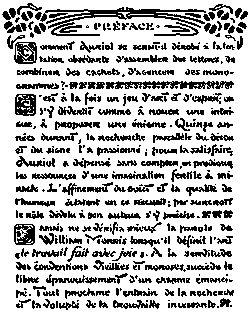 PRÉFACE
Comment Auriol se serait-il dérobé à la ten-
tation obsédante d'assembler des lettres, de
combiner des cachets, d'agencer des mono-
grammes?
C'est à la fois un jeu d'art et d'esprit; on
s'y divertit comme à nouer une intri-
gue, à proposer une énigme. Quinze an-
nées durant, la recherche parallèle du décor
et du signe l'a passionné; pour la satisfaire,
Auriol a dépensé sans compter, en prodigue,
les ressources d'une imagination fertile à mi-
racle. L'affinement du goût et la qualité de
l'humour éclatent en ce recueil; par surcroît
le rôle dévolu à son auteur s'y précise.
Jamais ne se vérifia mieux la parole de
William Morris lorsqu'il définit l'art
« le travail fait avec joie ». A la servitude
des conventions vieillies et moroses, succède le
libre épanouissement d'un charme émané
Tout proclame l'entrain de la recherche
et la volupté de la trouvaille incessante.